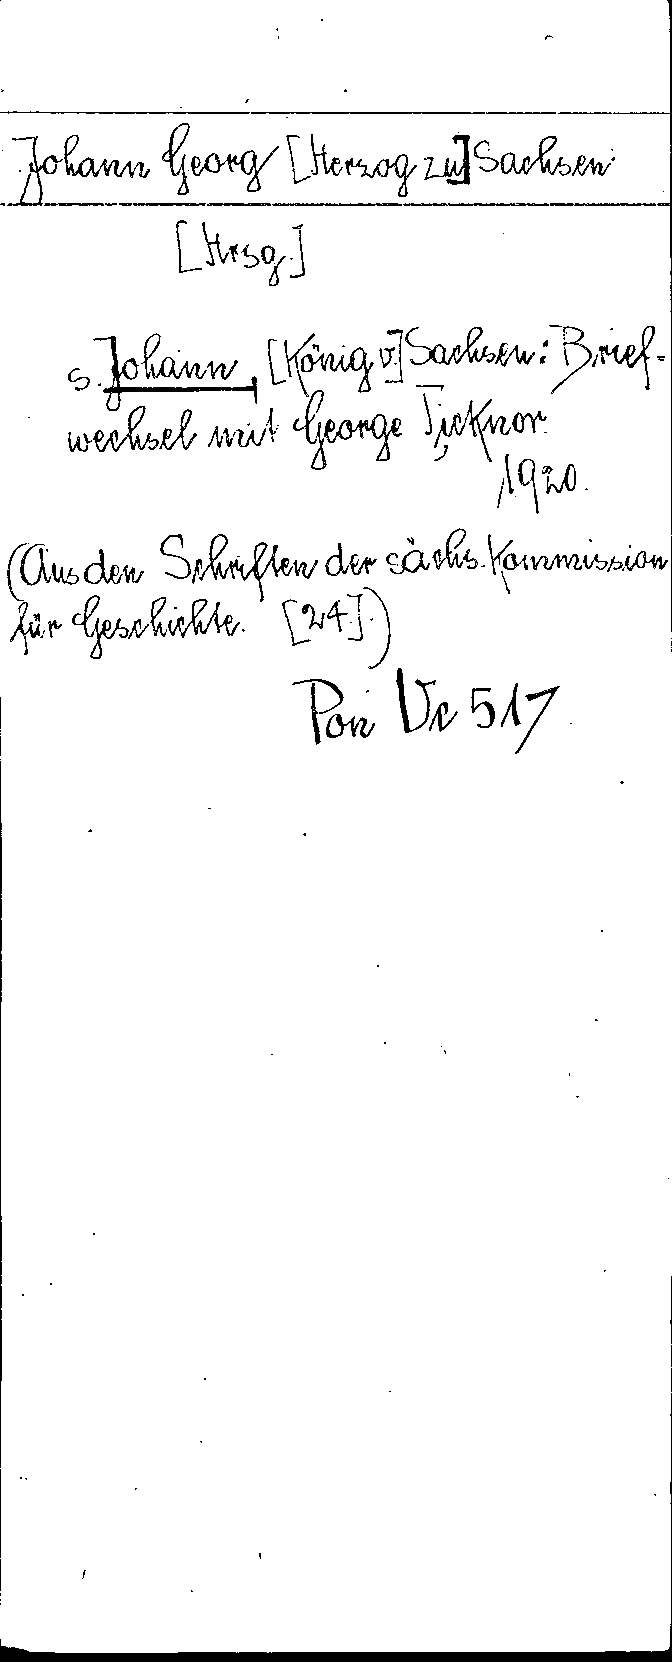 Johann Georg [Herzog zu] Sachsen
[Hrsg.]
s. Johann, [König v.] Sachsen: Brief-
wechsel mit George Ticknor.
1920.
(Aus den Schriften der sächs. Kommission
für Geschichte. [24].)
Pon Vc 517